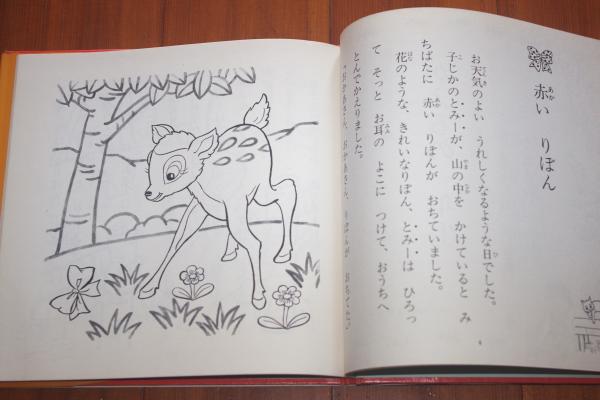 赤い りぼん
お天気のよい うれしくなるような日でした。
子じかのとみーが、山の中を かけていると み
ちばたに 赤い りぼんが おちていました。
花のような、きれいなりぼん、とみーは ひろっ
て そっと お耳の よこに つけて、おうちへ
とんでかえりました。
「おかあさん、おかあさん、りぼんが おちてた。